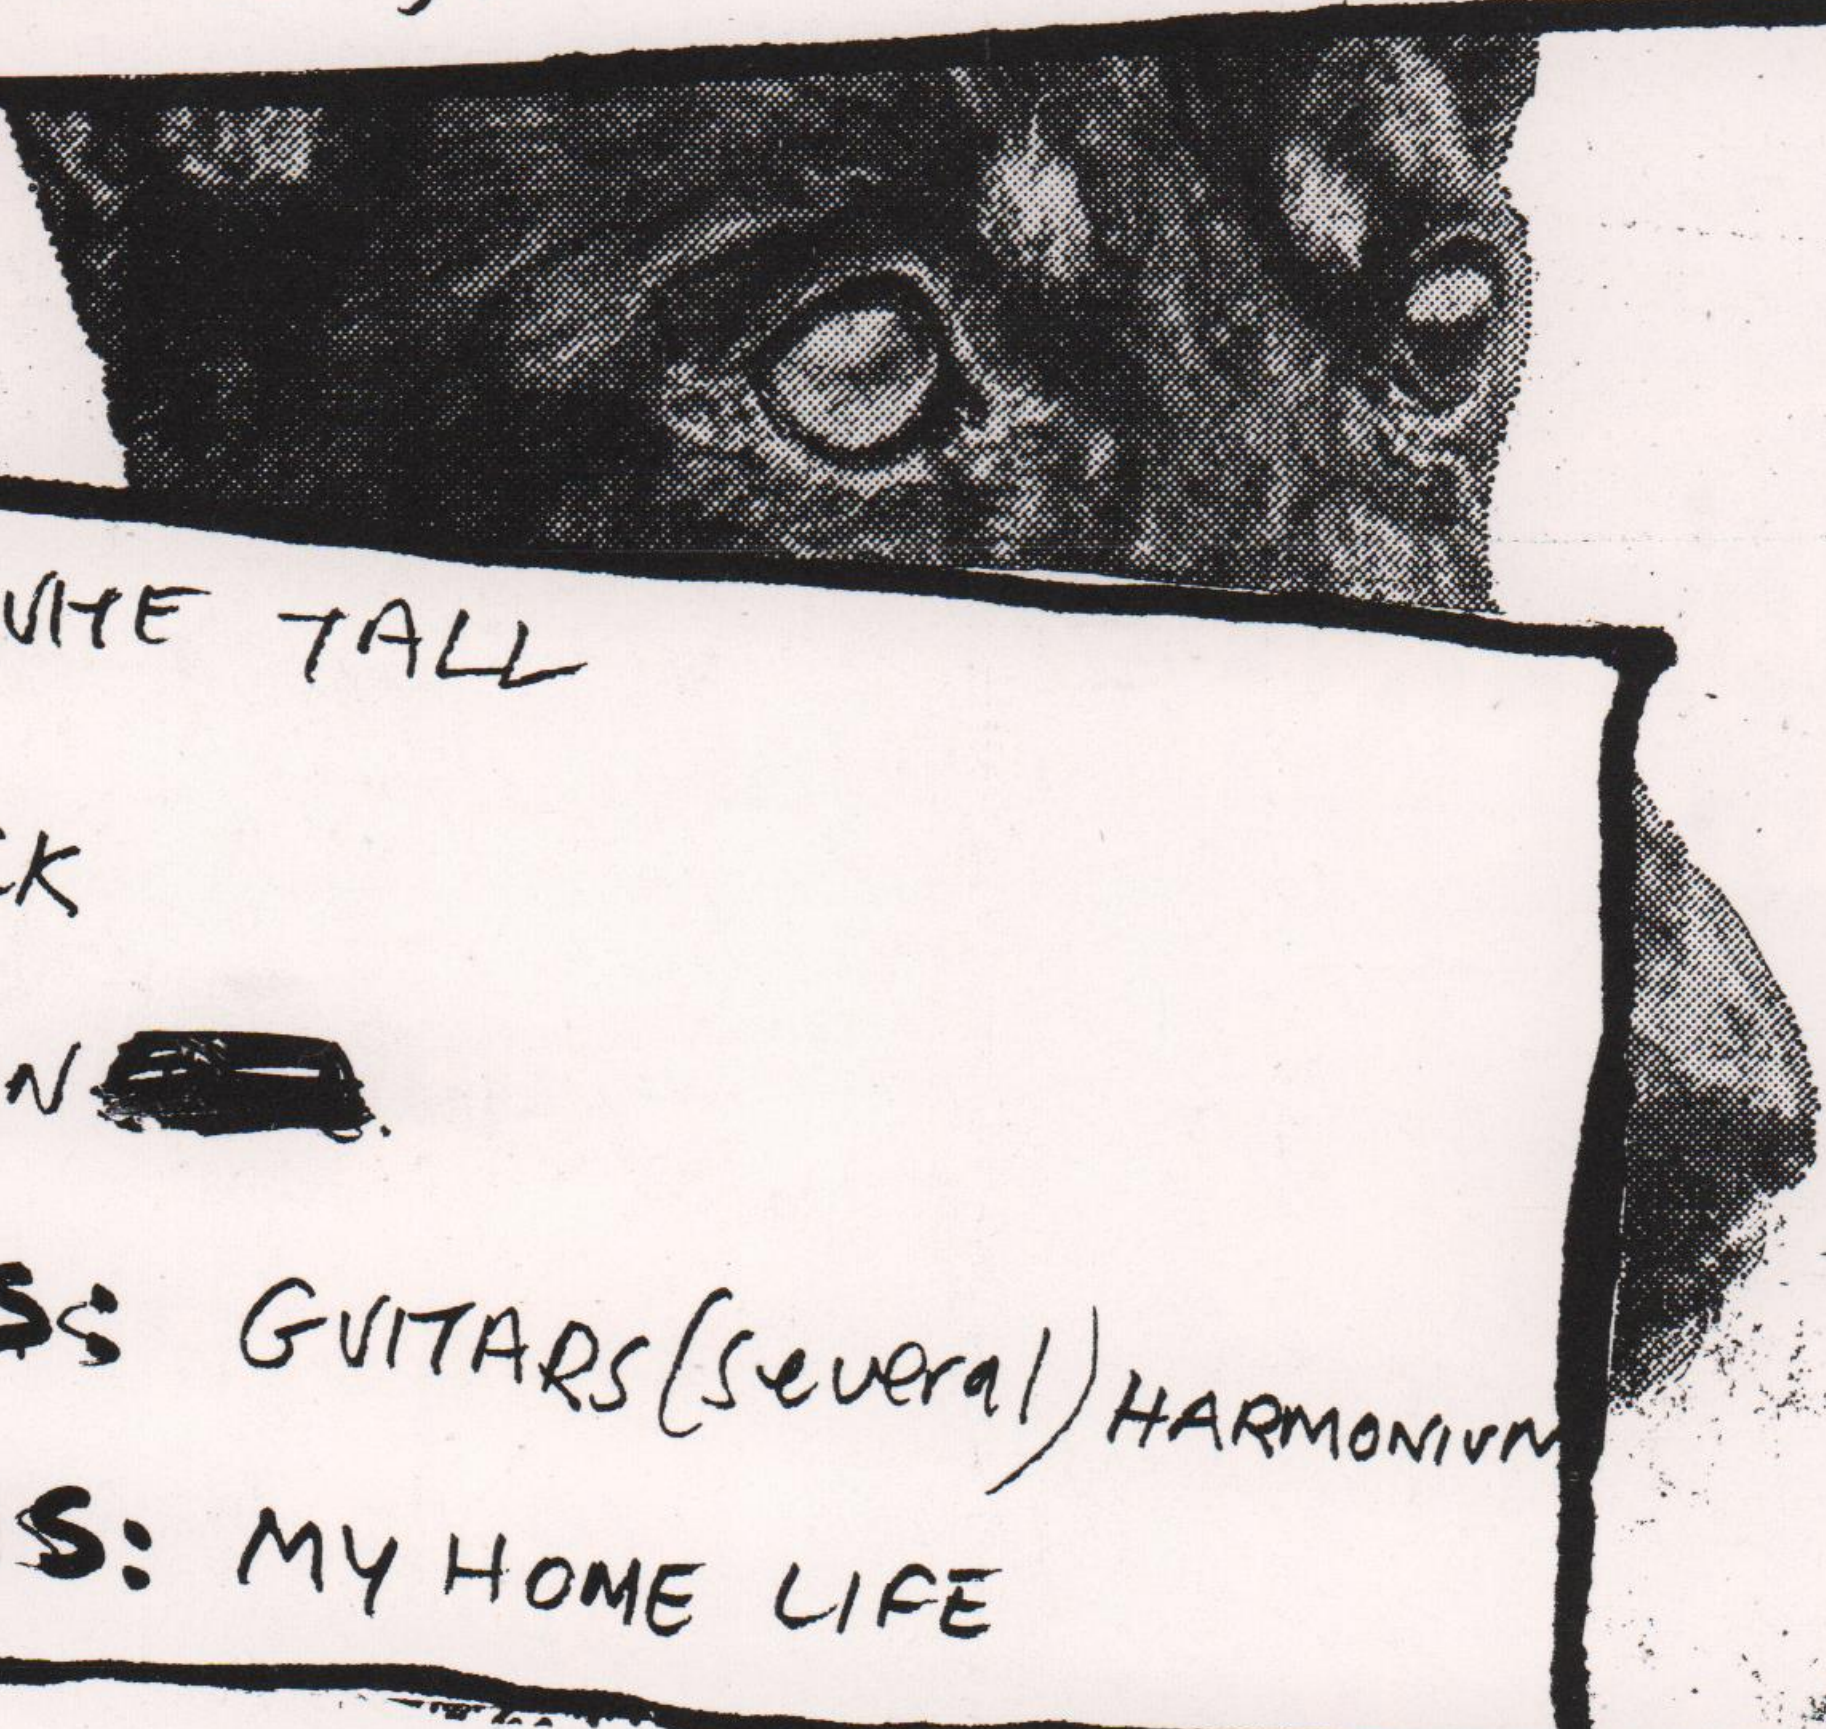 UITE TALL
CK
N
SS: GUITARS (several) HARMONIUM
S: MY HOME LIFE